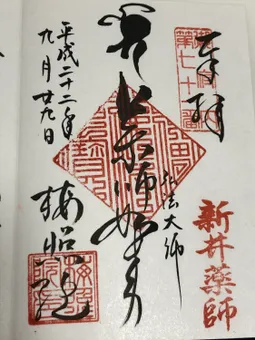 奉拝
第七十一番
新井薬師
弘法大師
薬師如来
梅照院
平成二十二年
九月廿九日